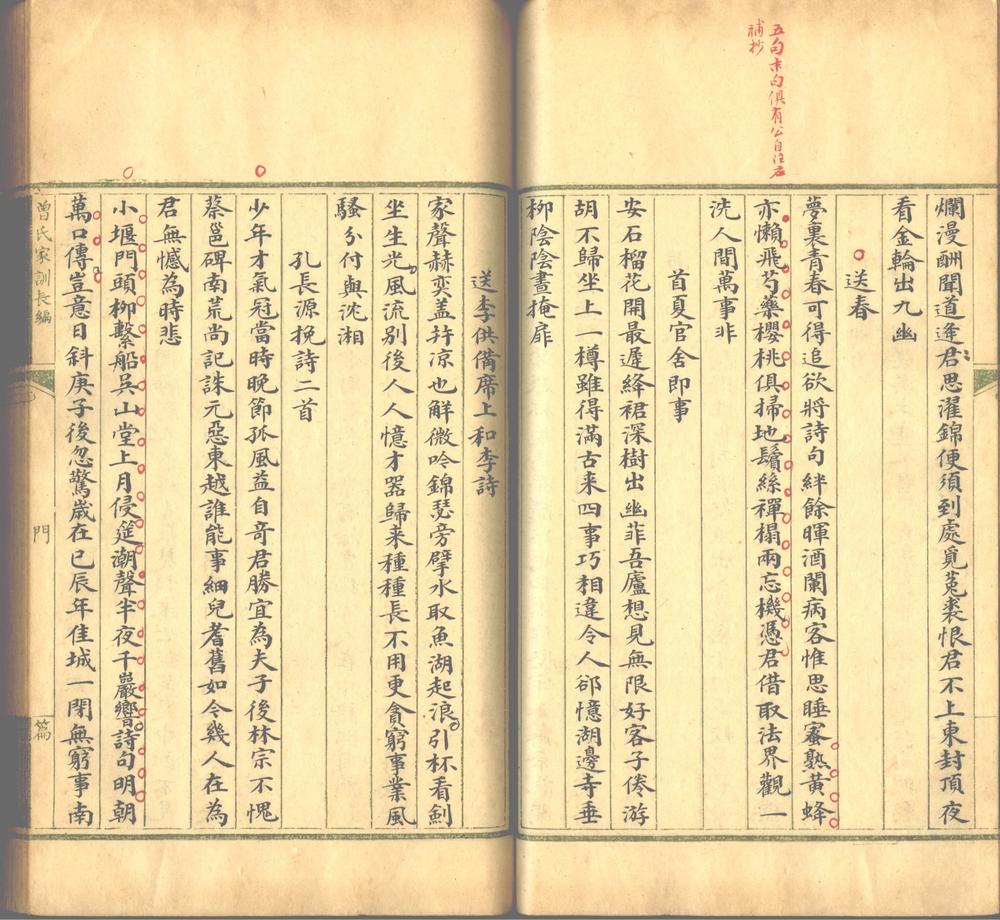 五句末句俱有公自注君
補抄
爛漫酬聞道逢君思濯錦便須到處覓菟裘恨君不上東封頂夜
看金輪出九幽
送春
夢裏青春可得追欲將詩句絆餘暉酒闌病客惟思睡蜜熟黃蜂
亦懶飛芍藥櫻桃俱掃地鬢絲禪榻兩忘機憑君借取法界觀一
洗人間萬事非
首夏官舍即事
安石榴花開最遲絳裙深樹出幽菲吾廬想見無限好客子倦游
胡不歸坐上一樽雖得滿古来四事巧相違令人郤憶湖邊寺垂
柳陰陰晝掩扉
送李供備席上和李詩
家聲赫奕盖幷凉也解微吟錦瑟旁擘水取魚湖起浪引杯看劍
坐生光風流別後人人憶才器歸来種種長不用更貪窮事業風
騷分付與沈湘
孔長源挽詩二首
少年才氣冠當時晚節孤風益自奇君勝宜為夫子後林宗不愧
蔡邕碑南荒尚記誅元惡東越誰能事細兒耆舊如今幾人在為
君無憾為時悲
小堰門頭柳繫船吳山堂上月侵筵潮聲半夜千巖響詩句明朝
萬口傳豈意日斜庚子後忽驚歲在已辰年佳城一閉無窮事南
曾氏家訓長編
門
篇